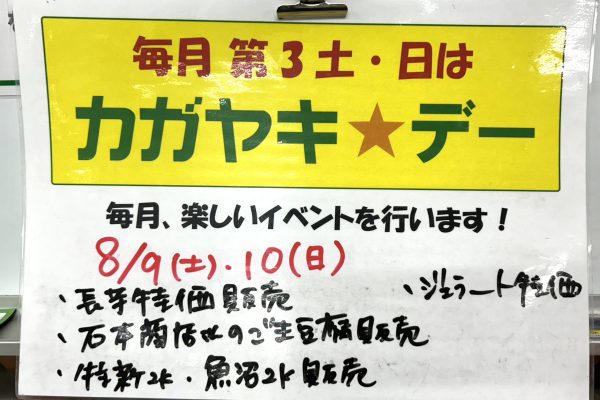 毎月 第3土・日は
カガヤキ★デー
毎月、楽しいイベントを行います!
8/9(土)・10(日)
、長芋特価販売
、ジェラート特価
、石本商店さんのごま豆腐販売
、特新2k・魚沼2k販売